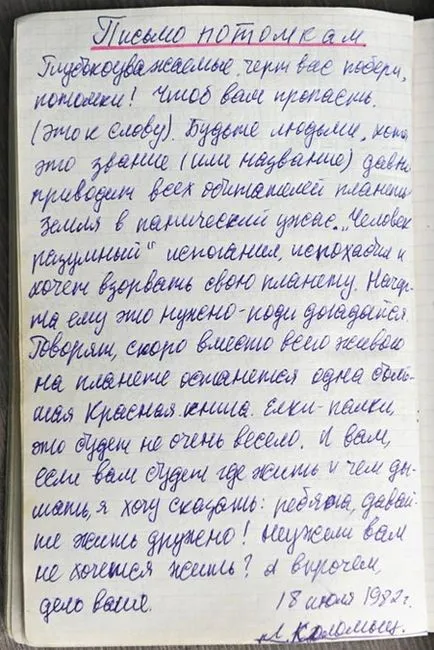 Письмо потомкам
Глубокоуважаемые, черт вас побери,
потомки! Чтоб вам пропасть.
(это к слову). Будьте людьми, хотя
это звание (или название) давно
приводит всех обитателей планеты
Земля в панический ужас. „Человек
разумный" испоганил, испохабил и
хочет взорвать свою планету. Начер-
та ему это нужно - поди догадайся.
Говорят, скоро вместо всего живого
на планете останется одна боль-
шая Красная книга. Ёлки-палки,
это будет не очень весело. И вам,
если вам будет где жить и чем ды-
шать, я хочу сказать: ребята, давай-
те жить дружно! Неужели вам
не хочется жить? А впрочем,
дело ваше.
18 июля 1982 г.
Л. Коломиец